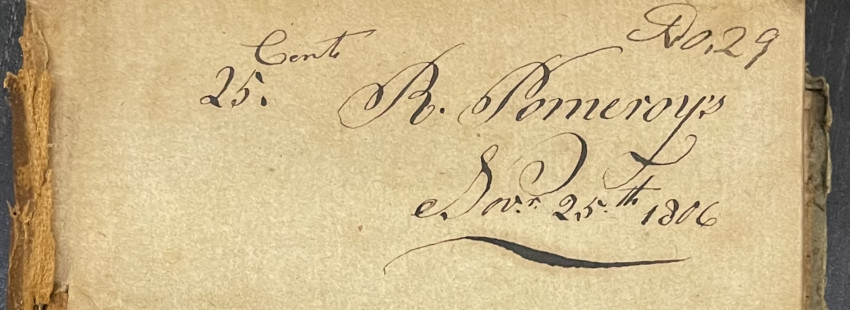 No. 29
25. Cents
R. Pomeroy's
Novr. 25.th 1806